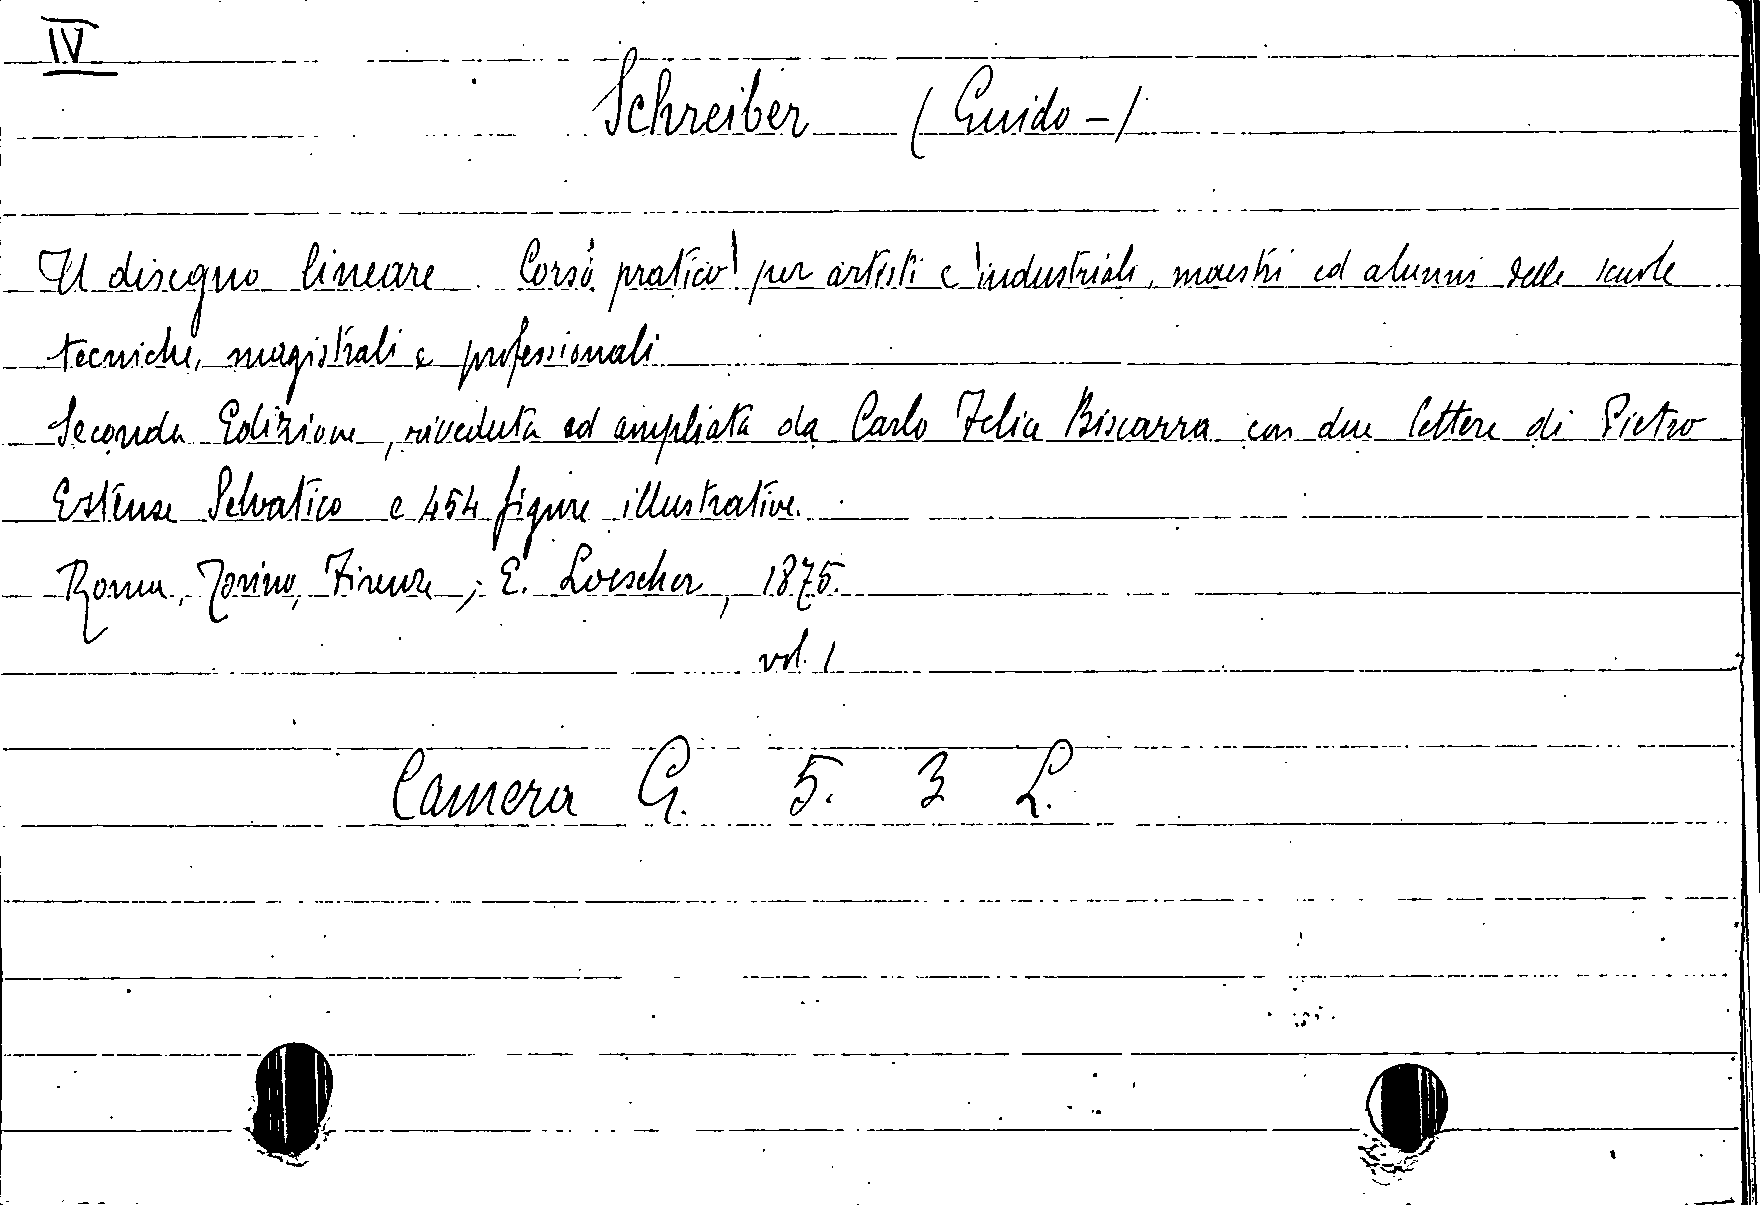 IV
Schreiber (Guido -)
Il disegno lineare. Corso pratico per artisti e industriali, maestri ed alunni delle scuole
tecniche, magistrali e professionali
Seconda Edizione, riveduta ed ampliata da Carlo Felice Biscarra con due lettere di Pietro
Estense Selvatico e 454 figure illustrative.
Roma, Torino, Firenze, ; E. Loescher, 1875.
vol. 1
Camera G. 5. 3 L.